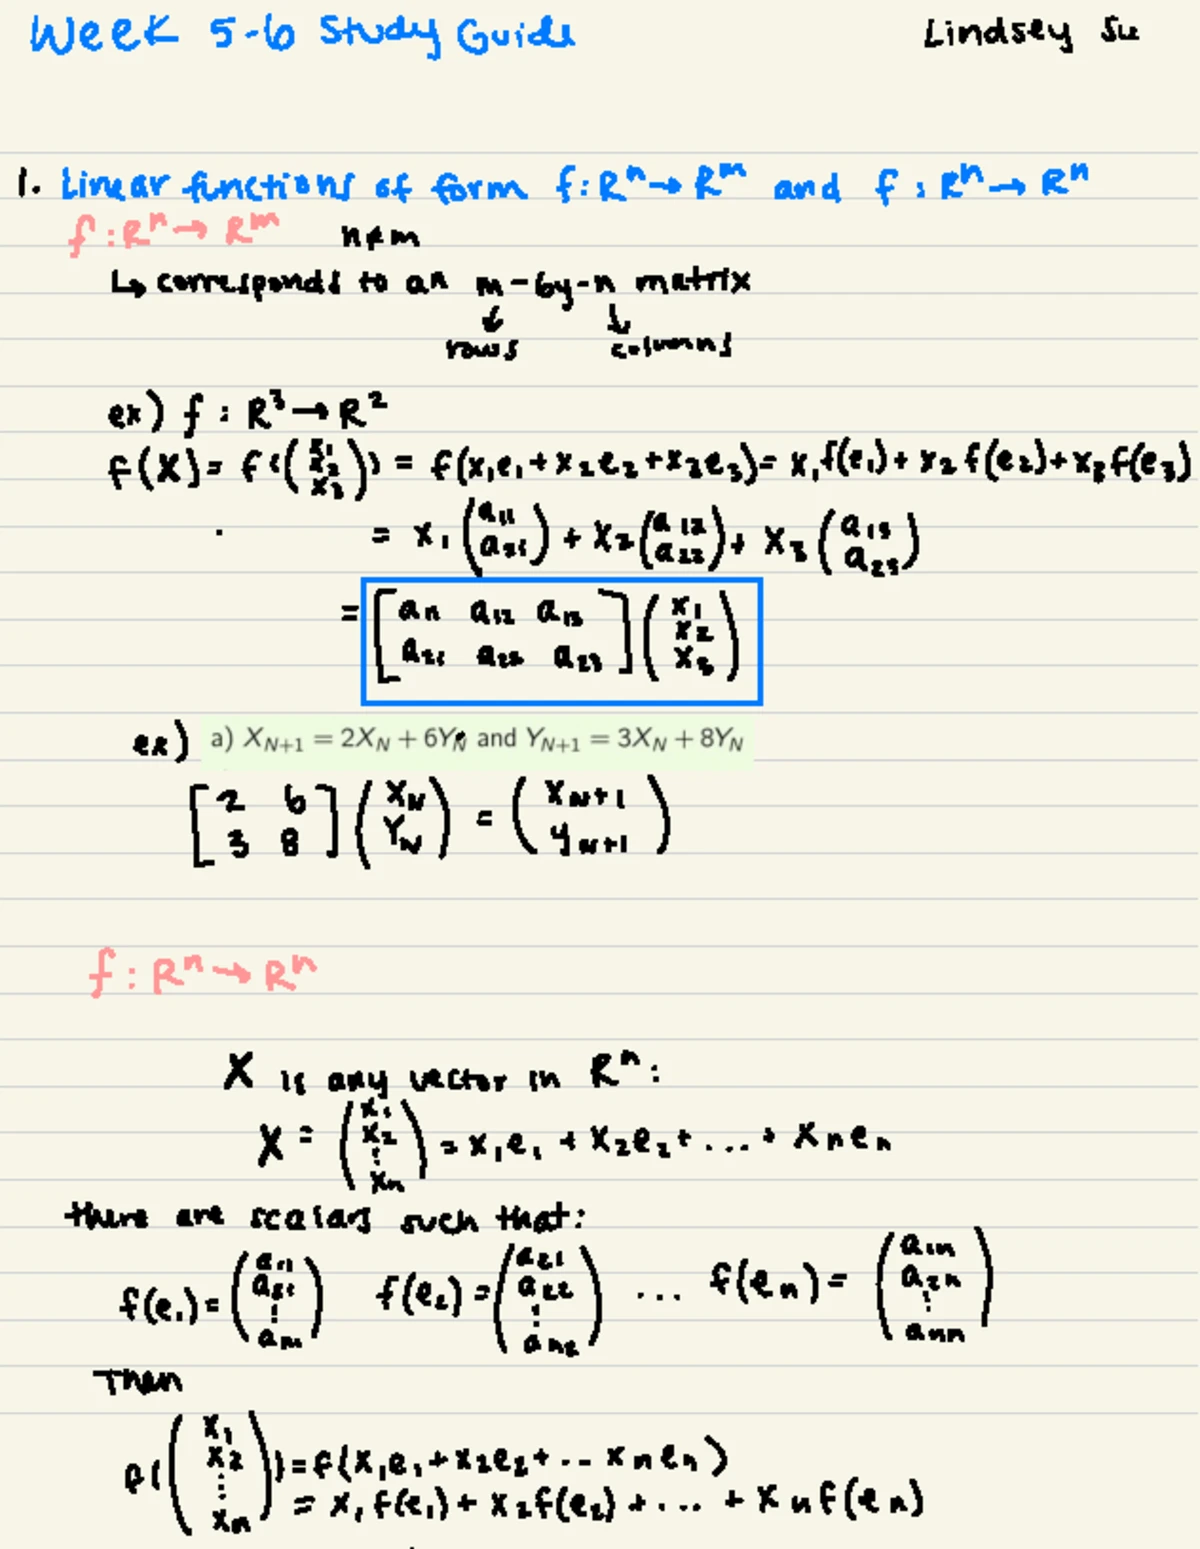 Week 5-6 Study Guide Lindsey Su
1. Linear functions of form f: Rⁿ → Rᵐ and f: Rⁿ → Rⁿ
f: Rⁿ → Rᵐ n≠m
↳ corresponds to an m-by-n matrix
↓ ↓
rows columns
ex) f: R³ → R²
f(X) = f((x₁ x₂ x₃)) = f(x₁e₁ + x₂e₂ + x₃e₃) = x₁f(e₁) + x₂f(e₂) + x₃f(e₃)
= x₁(a₁₁ a₂₁) + x₂(a₁₂ a₂₂) + x₃(a₁₃ a₂₃)
= [a₁₁ a₁₂ a₁₃
a₂₁ a₂₂ a₂₃] (x₁ x₂ x₃)
ex) a) X_{N+1} = 2X_N + 6Y_N and Y_{N+1} = 3X_N + 8Y_N
[2 6
3 8] (X_N Y_N) = (X_{N+1} y_{N+1})
f: Rⁿ → Rⁿ
X is any vector in Rⁿ:
X = (x₁ x₂ ⋮ xₙ) = x₁e₁ + x₂e₂ + ... + xₙeₙ
there are scalars such that:
f(e₁) = (a₁₁ a₂₁ ⋮ aₙ₁) f(e₂) = (a₂₁ a₂₂ ⋮ aₙ₂) ... f(eₙ) = (a₁ₙ a₂ₙ ⋮ aₙₙ)
Then
f((x₁ x₂ ⋮ xₙ)) = f(x₁e₁ + x₂e₂ + ... xₙeₙ)
= x₁f(e₁) + x₂f(e₂) + ... + xₙf(eₙ)